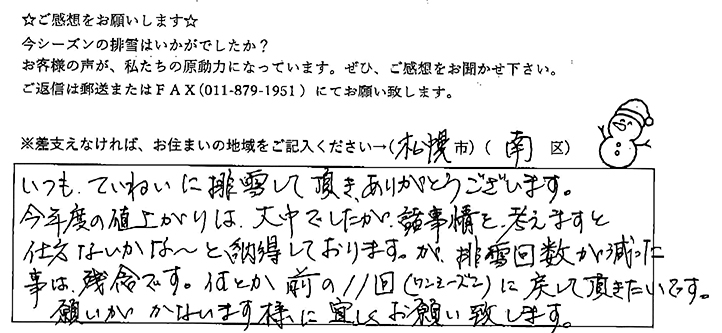 ☆ご感想をお願いします☆
今シーズンの排雪はいかがでしたか？
お客様の声が、私たちの原動力になっています。ぜひ、ご感想をお聞かせ下さい。
ご返信は郵送またはＦＡＸ(011-879-1951）にてお願い致します。
※差支えなければ、お住まいの地域をご記入ください→(札幌市）（南区）
いつも、ていねいに排雪して頂き、ありがとうございます。
今年度の値上がりは、大巾でしたが、諸事情を、考えますと
仕方ないかな～と納得しております。が、排雪回数が減った
事は、残念です。何とか前の11回(ワンシーズン)に戻して頂きたいです。
願いがかないます様に宜しくお願い致します。